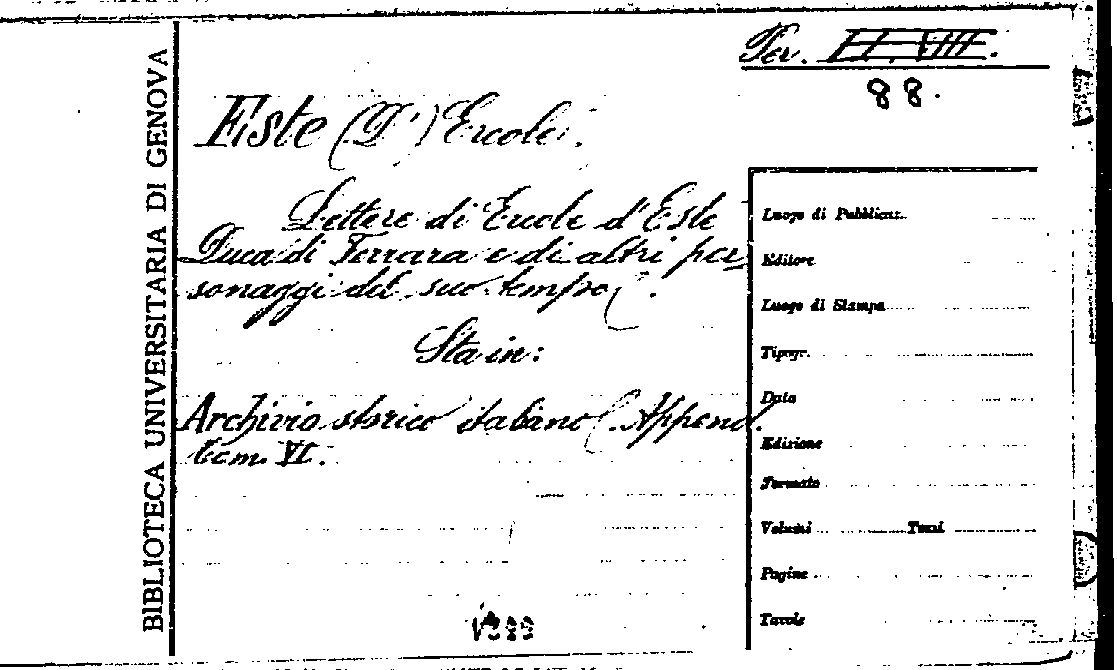 BIBLIOTECA UNIVERSITARIA DI GENOVA
Per. II. VIII.
88.
Este (D') Ercole.
Lettere di Ercole d'Este
Duca di Ferrara e di altri per
sonaggi del suo tempo.
Sta in:
Archivio storico italiano. Append.
tom. VI.
Luogo di Pubblicaz.
Editore
Luogo di Stampa
Tipogr.
Data
Edizione
Formato
Volumi Tomi
Pagine
Tavole